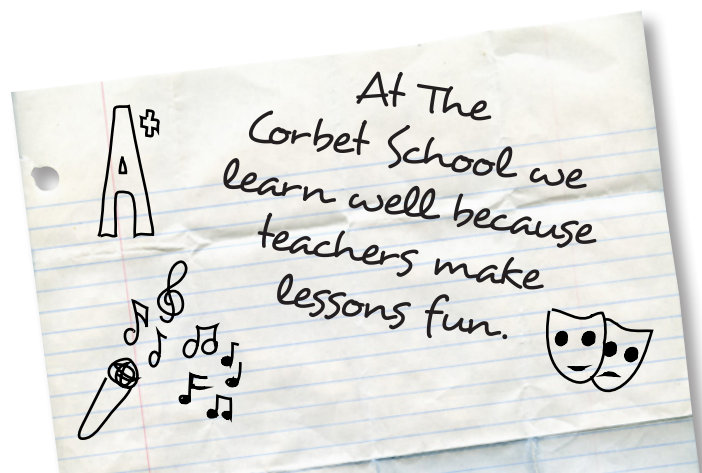 A+
At The
Corbet School we
learn well because
teachers make
lessons fun.